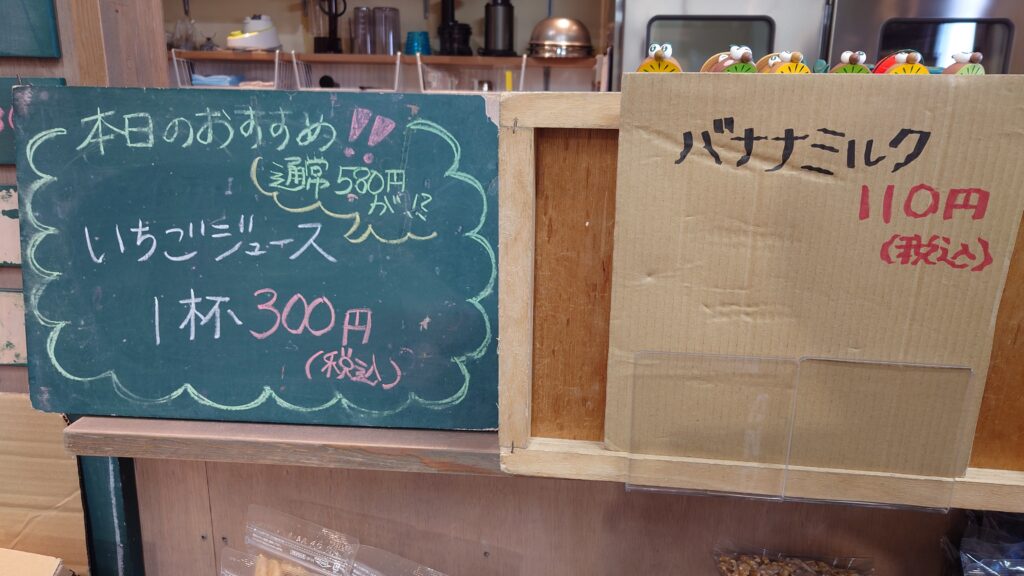 本日のおすすめ!!
通常580円
が!?
いちごジュース
1杯300円
(税込)
バナナミルク
110円
(税込)